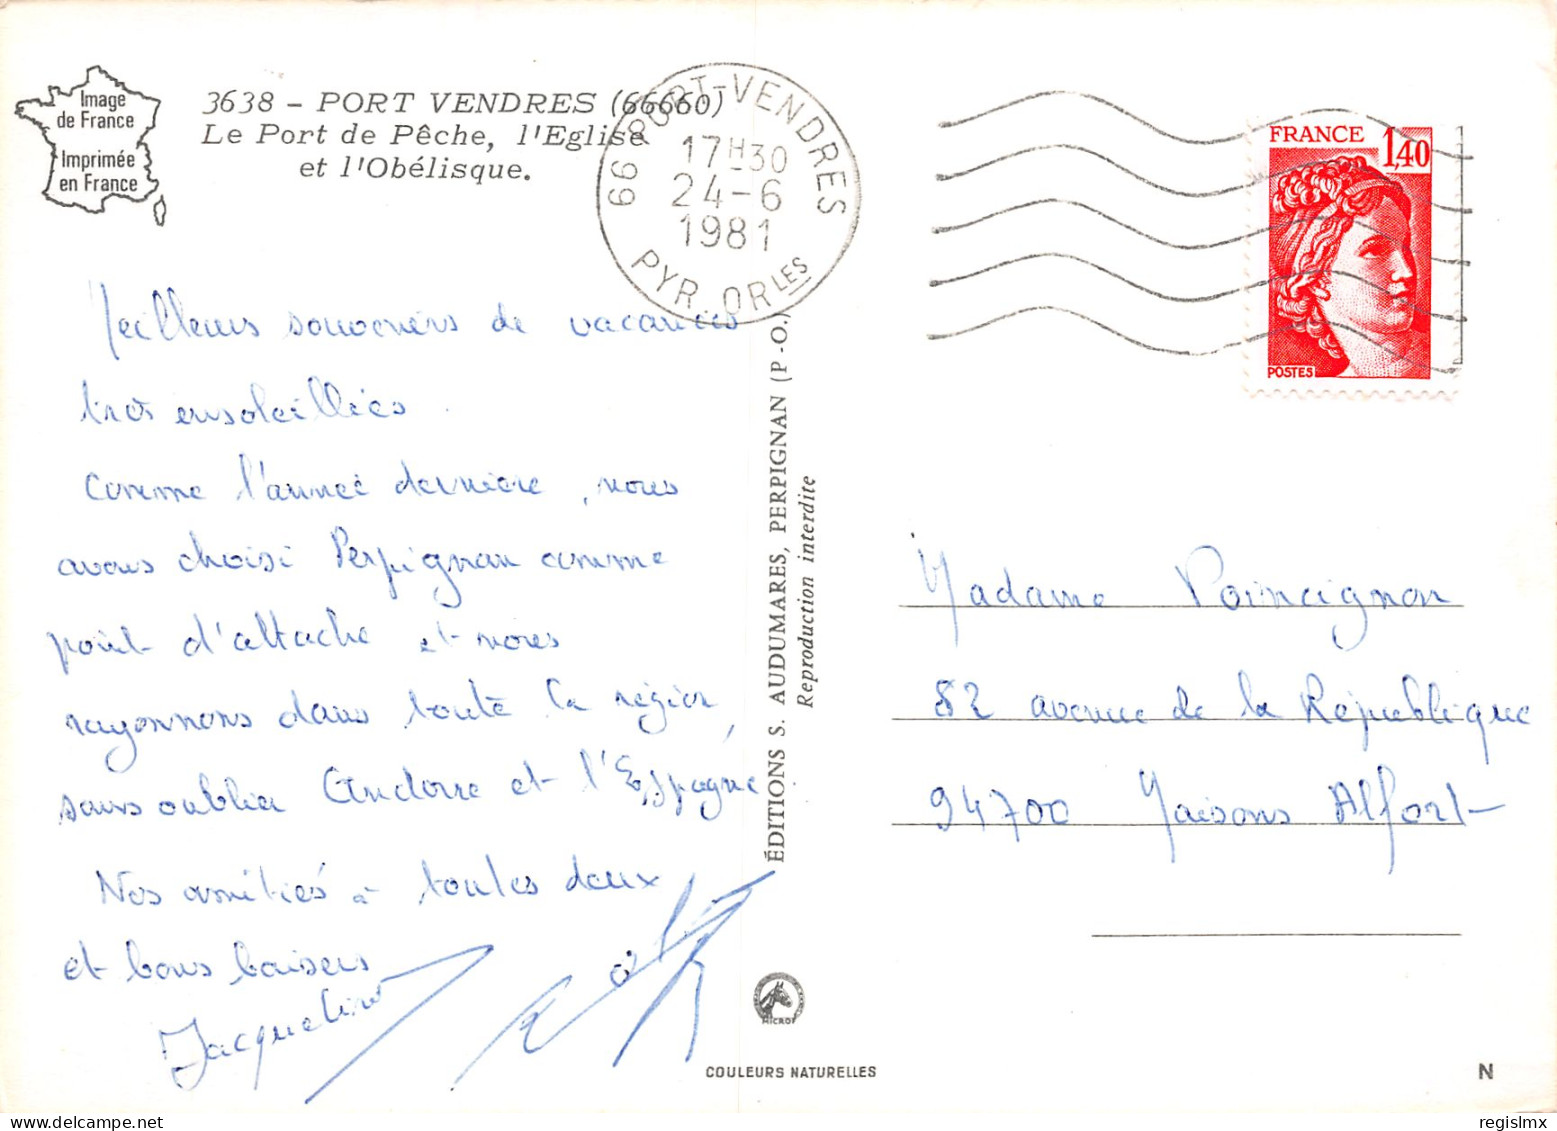 Image
de France
Imprimée
en France
3638 - PORT VENDRES (66660)
Le Port de Pêche, l'Eglise
et l'Obélisque.
66 PORT-VENDRES
17H30
24-6
1981
PYR. ORLES
FRANCE
1,40
POSTES
Meilleurs souvenirs de vacances
très ensoleillées.
Comme l'année dernière, nous
avons choisi Perpignan comme
point d'attache et nous
rayonnons dans toute la région,
sans oublier Andorre et l'Espagne
Nos amitiés à toutes deux
et bons baisers
Jacqueline
ÉDITIONS S. AUDUMARES, PERPIGNAN (P.-O.)
Reproduction interdite
Madame Poincignon
82 avenue de la République
94700 Maisons Alfort
MICRO
COULEURS NATURELLES
N
regislmx